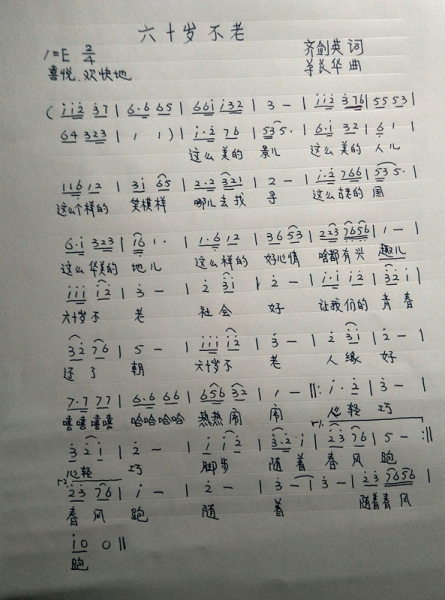 六十岁不老
1=E 2/4
齐剑英 词
喜悦、欢快地
华 曲
( i i 2 3 7 | 6·6 6 5 | 6 6 i i 3 2 | 3 — | i i 2 3 7 6 | 5 5 5 3 |
6 4 3 2 3 | 1 , 1 ) | i·2 7 6 | 5 3 5 · | 6·i 3 2 | 6 1 |
这么美的 景儿 这么美的 人儿
1 1 6 1 2 | 3 i 6 5 | 2·2 3 2 1 | 2 — | i·2 7 6 6 | 5 3 5 · |
这么个样的 笑模样 哪儿去找 寻 这么 的 园
6·i 3 2 3 | i 6 1 · | 1·6 1 2 | 3 6 5 3 | 2 2 3 7 6 5 6 | 1 — |
这么华美的 地儿 这么样的 好心情 啥都有兴 趣儿
i i i i 2 | 3 — | 2 3 i | 2 — | i·i i 2 | 3 2 i |
六十岁不 老 社会 好 让我们的 青春
3 2 7 6 | 5 — | i i i i 2 | 3 — | 2 3 i | 2 — |
还了 朝 六十岁不 老 人缘 好
7·7 7 7 | 6·6 6 6 | 6 5 6 3 2 | 1 — ‖: i · 2 | 3 — |
嘻嘻嘻嘻 哈哈哈哈 热热闹 闹 心轻 巧
3 2 i | 2 — | i i 2 | 3·2 i | 2 3 7 6 | 5 — :‖
心轻 巧 脚步 随着 春风 跑
2 3 7 6 | i — | 2 — | 3 — | 3 — | 2 3 7 6 5 6 |
春风 跑 随 着 随着春风
i 0 0 ‖
跑